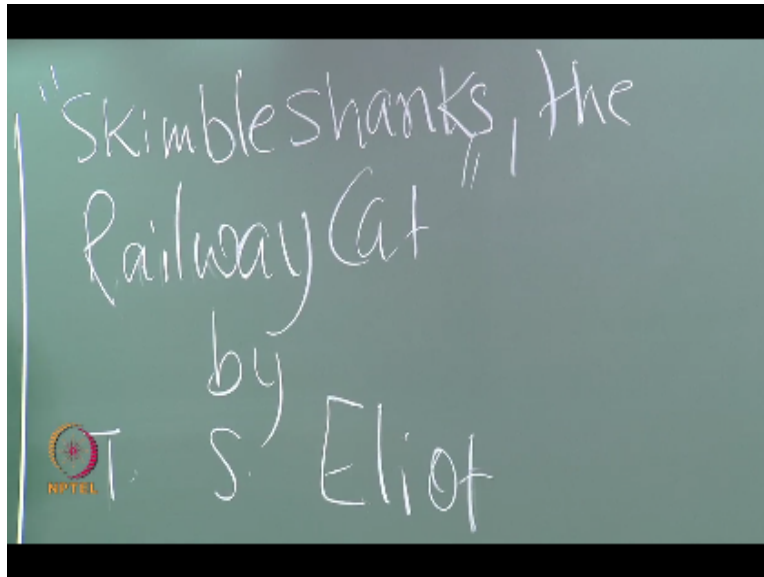 "Skimbleshanks, the
Railway Cat"
by
T. S. Eliot
NPTEL